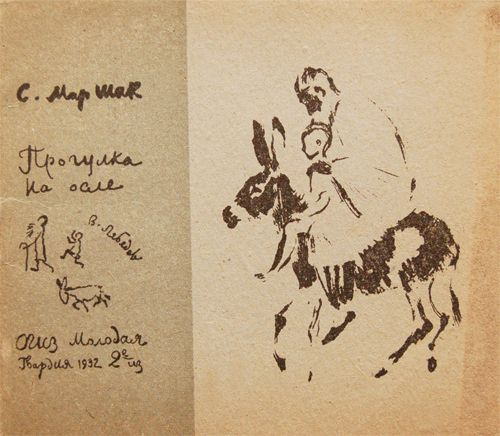 С. Маршак
Прогулка
на осле
В. Лебедев
ОГИЗ Молодая
Гвардия 1932 2е из